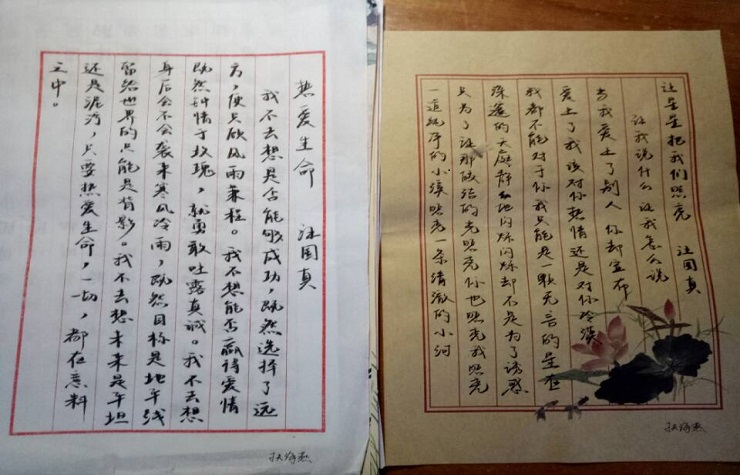 热爱生命 汪国真
我不去想是否能够成功，既然选择了远
方，便只顾风雨兼程。我不想能否赢得爱情
既然钟情于玫瑰，就勇敢吐露真诚。我不去想
身后会不会袭来寒风冷雨，既然目标是地平线
留给世界的只能是背影。我不去想未来是平坦
还是泥泞，只要热爱生命，一切，都在意料
之中。
让星星把我们照亮 汪国真
让我说什么 让我怎么说
当我爱上了别人 你却宣布
爱上了我 该对你热情还是对你冷漠
我都不能对于你 我只能是一颗无言的星 在
深邃的天庭静静地闪烁闪烁却不是为了诱惑
只为了让那皎洁的光照亮你也照亮我照亮
一道纯净的小溪照亮一条清澈的小河